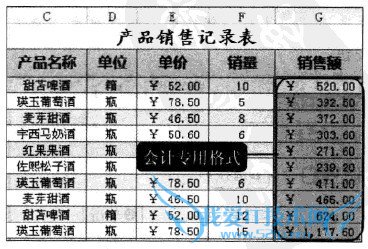 C D E F G
产品销售记录表
产品名称 单位 单价 销量 销售额
甜苔啤酒 箱 ￥ 52.00 10 ￥ 520.00
瑛玉葡萄酒 瓶 ￥ 78.50 5 ￥ 392.50
麦芽甜酒 瓶 ￥ 46.50 8 ￥ 372.00
宇西马奶酒 瓶 ￥ 50.60 6 ￥ 303.60
红果果酒 瓶 ￥ 271.60
佐熙松子酒 瓶 ￥ 239.20
会计专用格式
瑛玉葡萄酒 瓶 ￥ 78.50 6 ￥ 471.00
麦芽甜酒 瓶 ￥ 46.50 10 ￥ 465.00
甜苔啤酒 箱 ￥ 52.00 12 ￥ 624.00
瑛玉葡萄酒 瓶 ￥ 78.50 15 ￥ 1,177.50